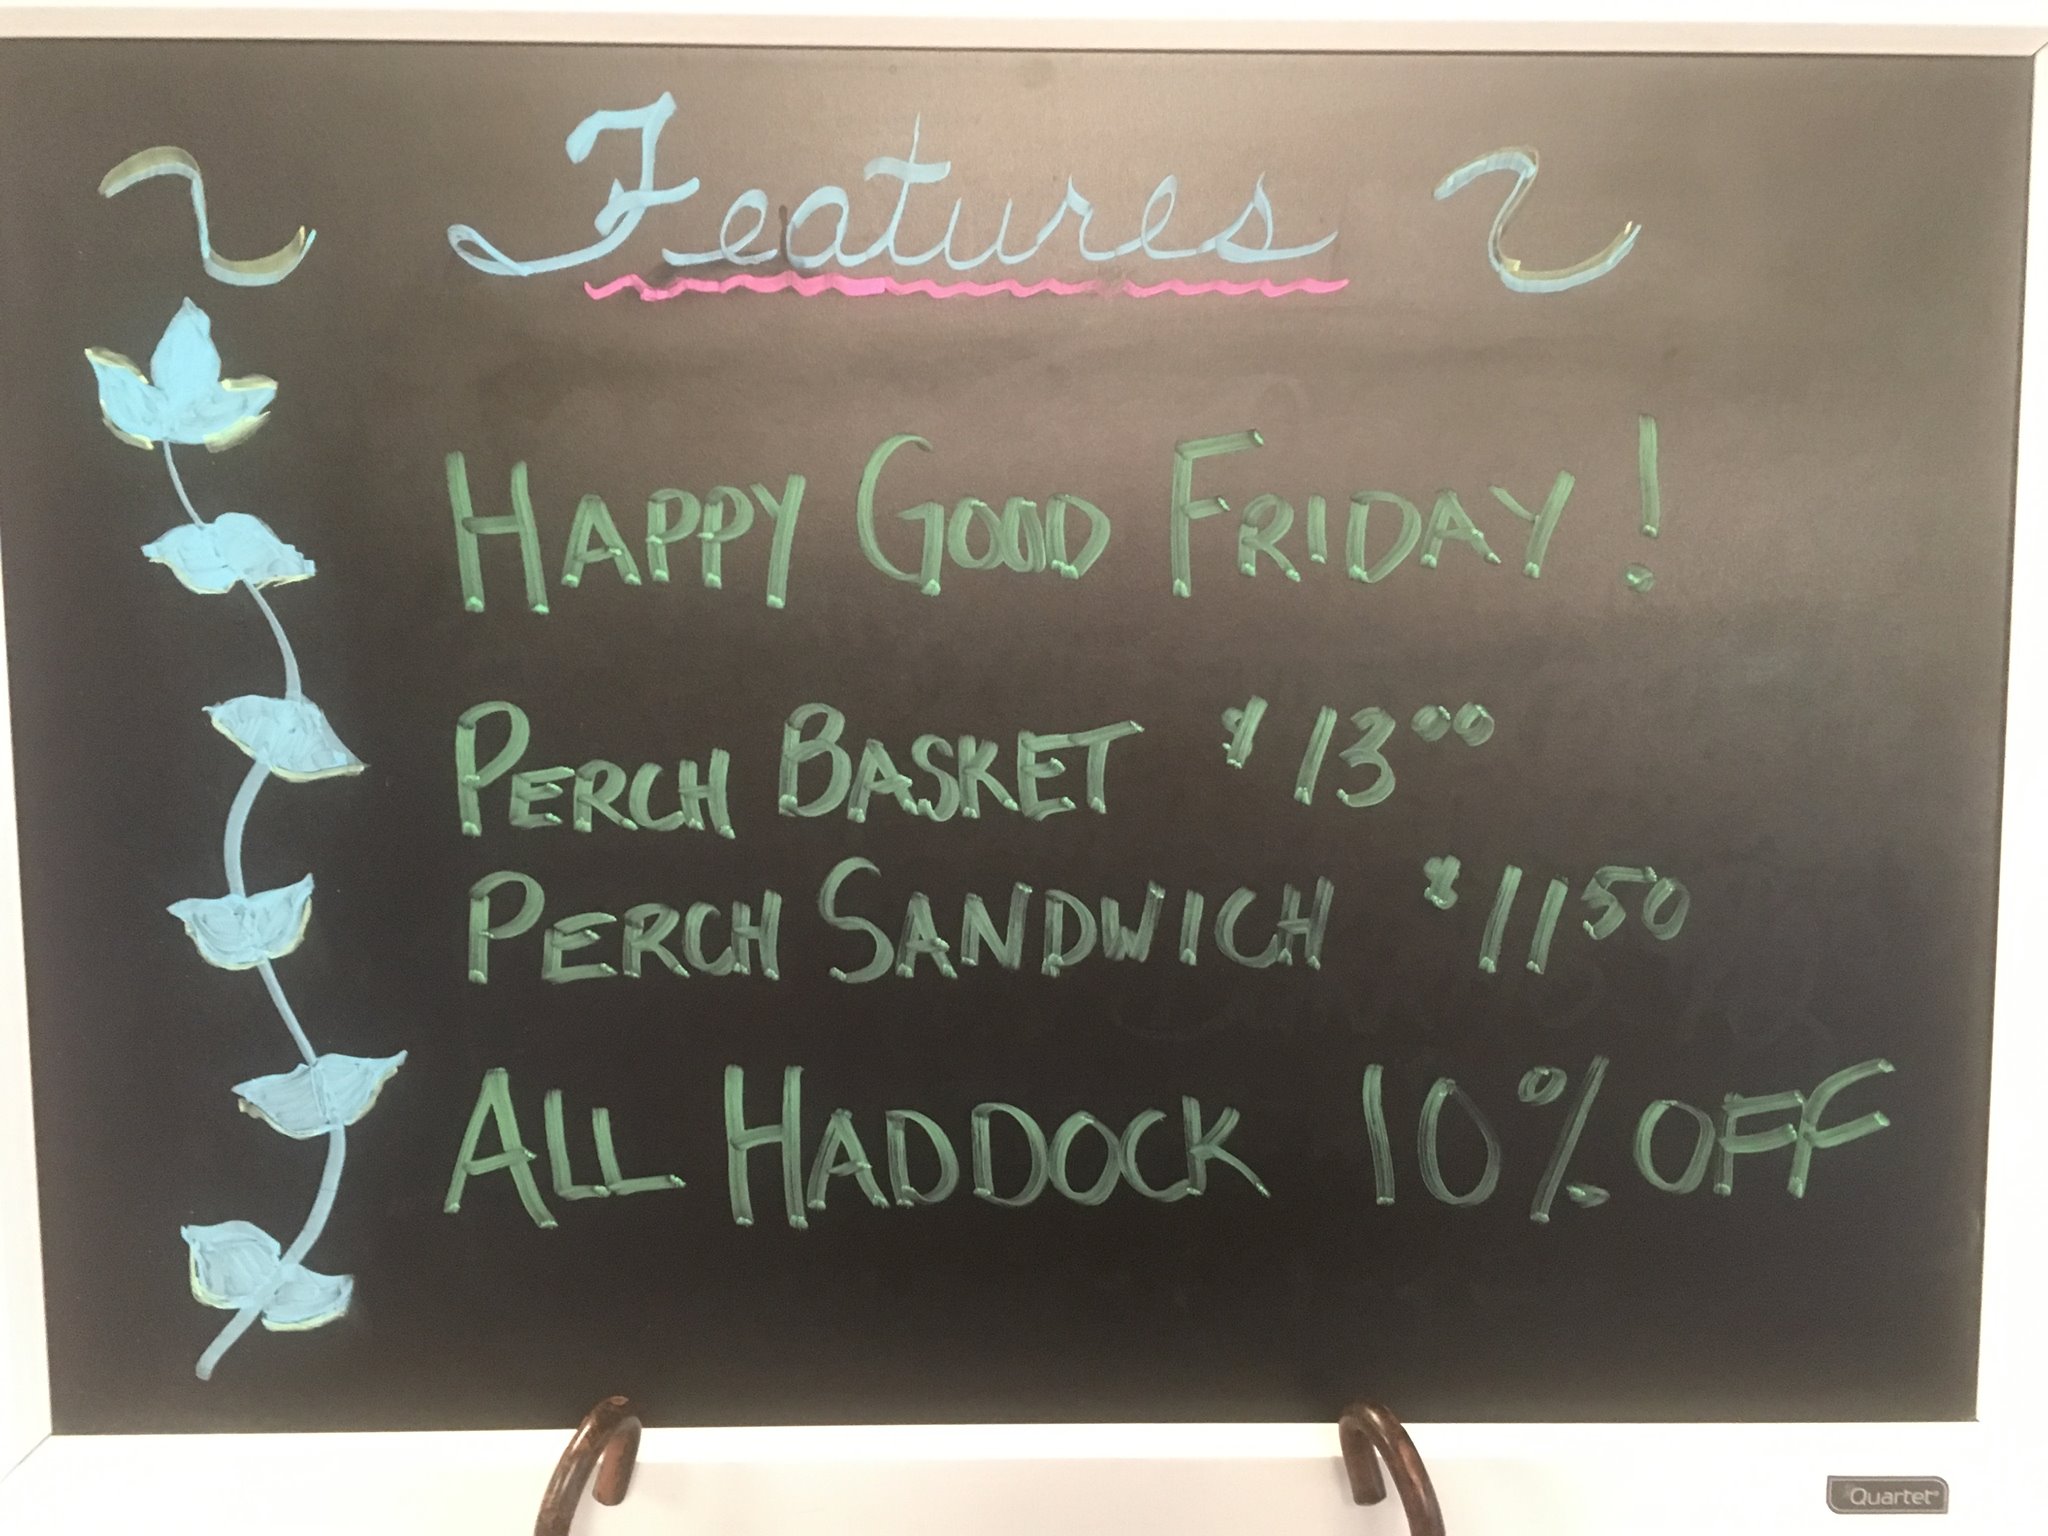 Features
HAPPY GOOD FRIDAY!
PERCH BASKET $1300
PERCH SANDWICH $1150
ALL HADDOCK 10% OFF
Quartet